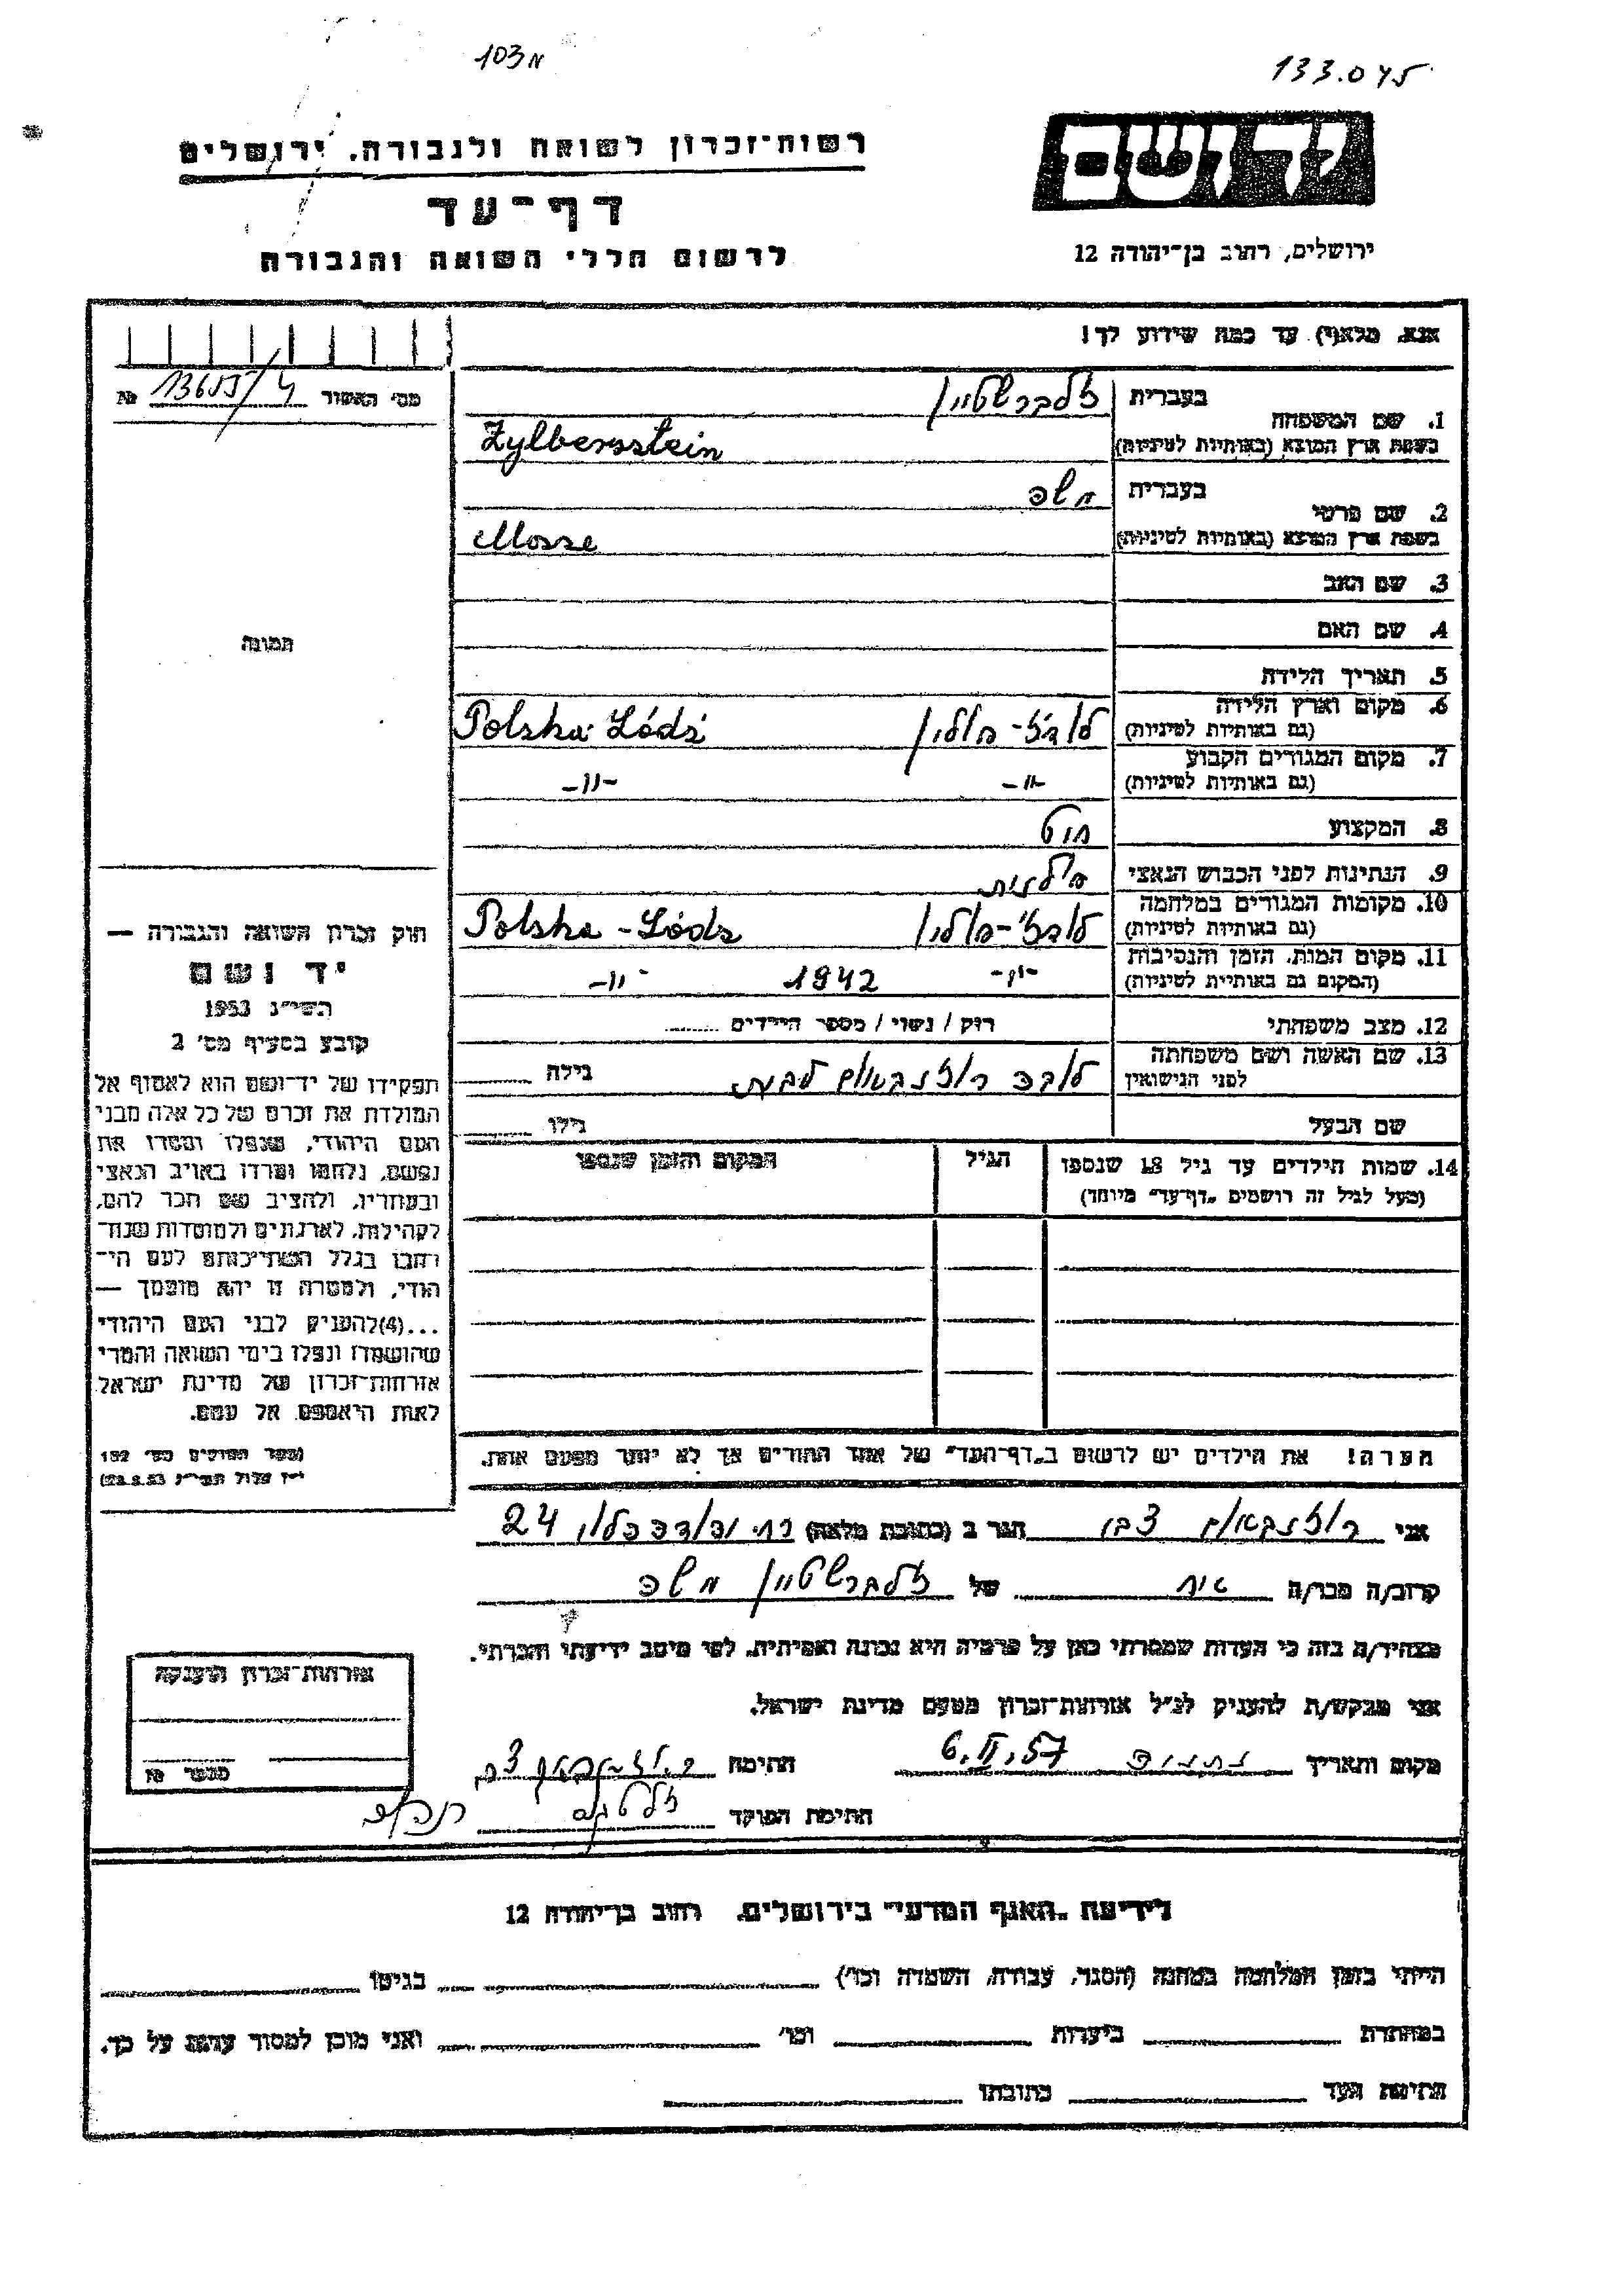 103א
133.045
יד ושם
רשות־זכרון לשואה ולגבורה, ירושלים
דף־עד
לרשום חללי השואה והגבורה
ירושלים, רחוב בן־יהודה 12
אנא, מלא(י) עד כמה שידוע לך!
מס' האשור № 13655/4
1. שם המשפחה בעברית זלברשטיין
בשפת ארץ המוצא (באותיות לטיניות) Zylbersstein
2. שם פרטי בעברית משה
בשפת ארץ המוצא (באותיות לטיניות) Mosze
3. שם האב
4. שם האם
תמונה
5. תאריך הלידה
6. מקום וארץ הלידה (גם באותיות לטיניות) לודז'-פולין Polska Łódź
7. מקום המגורים הקבוע (גם באותיות לטיניות) -"- -"-
8. המקצוע
9. הנתינות לפני הכבוש הנאצי פולנית
10. מקומות המגורים במלחמה (גם באותיות לטיניות) לודז'-פולין Polska - Łódz
11. מקום המות, הזמן והנסיבות (המקום גם באותיות לטיניות) -"- 1942 -"-
12. מצב משפחתי רווק / נשוי / מספר הילדים
13. שם האשה ושם משפחתה לפני הנישואין רוזנבאום גילה
שם הבעל גילו
14. שמות הילדים עד גיל 18 שנספו (מעל לגיל זה רושמים „דף־עד" מיוחד) הגיל המקום והזמן שנספו
הערה! את הילדים יש לרשום ב„דף־העד" של אחד ההורים אך לא יותר מפעם אחת.
חוק זכרון השואה והגבורה —
יד ושם
תשי"ג 1953
קובע בסעיף מס' 2
תפקידו של יד־ושם הוא לאסוף אל
המולדת את זכרם של כל אלה מבני
העם היהודי, שנפלו ומסרו את
נפשם, נלחמו ומרדו באויב הנאצי
ובעוזריו, ולהציב שם וזכר להם,
לקהילות, לארגונים ולמוסדות שנח־
רבו בגלל השתייכותם לעם הי־
הודי, ולמטרה זו יהא מוסמך —
...(4) להעניק לבני העם היהודי
שהושמדו ונפלו בימי השואה והמרי
אזרחות־זכרון של מדינת ישראל
לאות היאספם אל עמם.
(ספר החוקים מס' 132
י"ז אלול תשי"ג 28.8.53)
אני רוזנבאום צבי הגר ב (כתובת מלאה) 24
קרוב/ה מכר/ה של זלברשטיין משה
מצהיר/ה בזה כי העדות שמסרתי כאן על פרטיה היא נכונה ואמיתית, לפי מיטב ידיעתי והכרתי.
אני מבקש/ת להעניק לנ"ל אזרחות־זכרון מטעם מדינת ישראל.
מקום ותאריך נתניה 6.II.57 חתימה רוזנבאום צבי
חתימת הפוקד
אזרחות־זכרון הוענקה
מספר №
לידיעת „האגף המדעי" בירושלים, רחוב בן־יהודה 12
הייתי בזמן המלחמה במחנה (הסגר, עבודה, השמדה וכו') בגיטו
במחתרת ביערות וכו' ואני מוכן למסור עדות על כך.
חתימת העד כתובתו